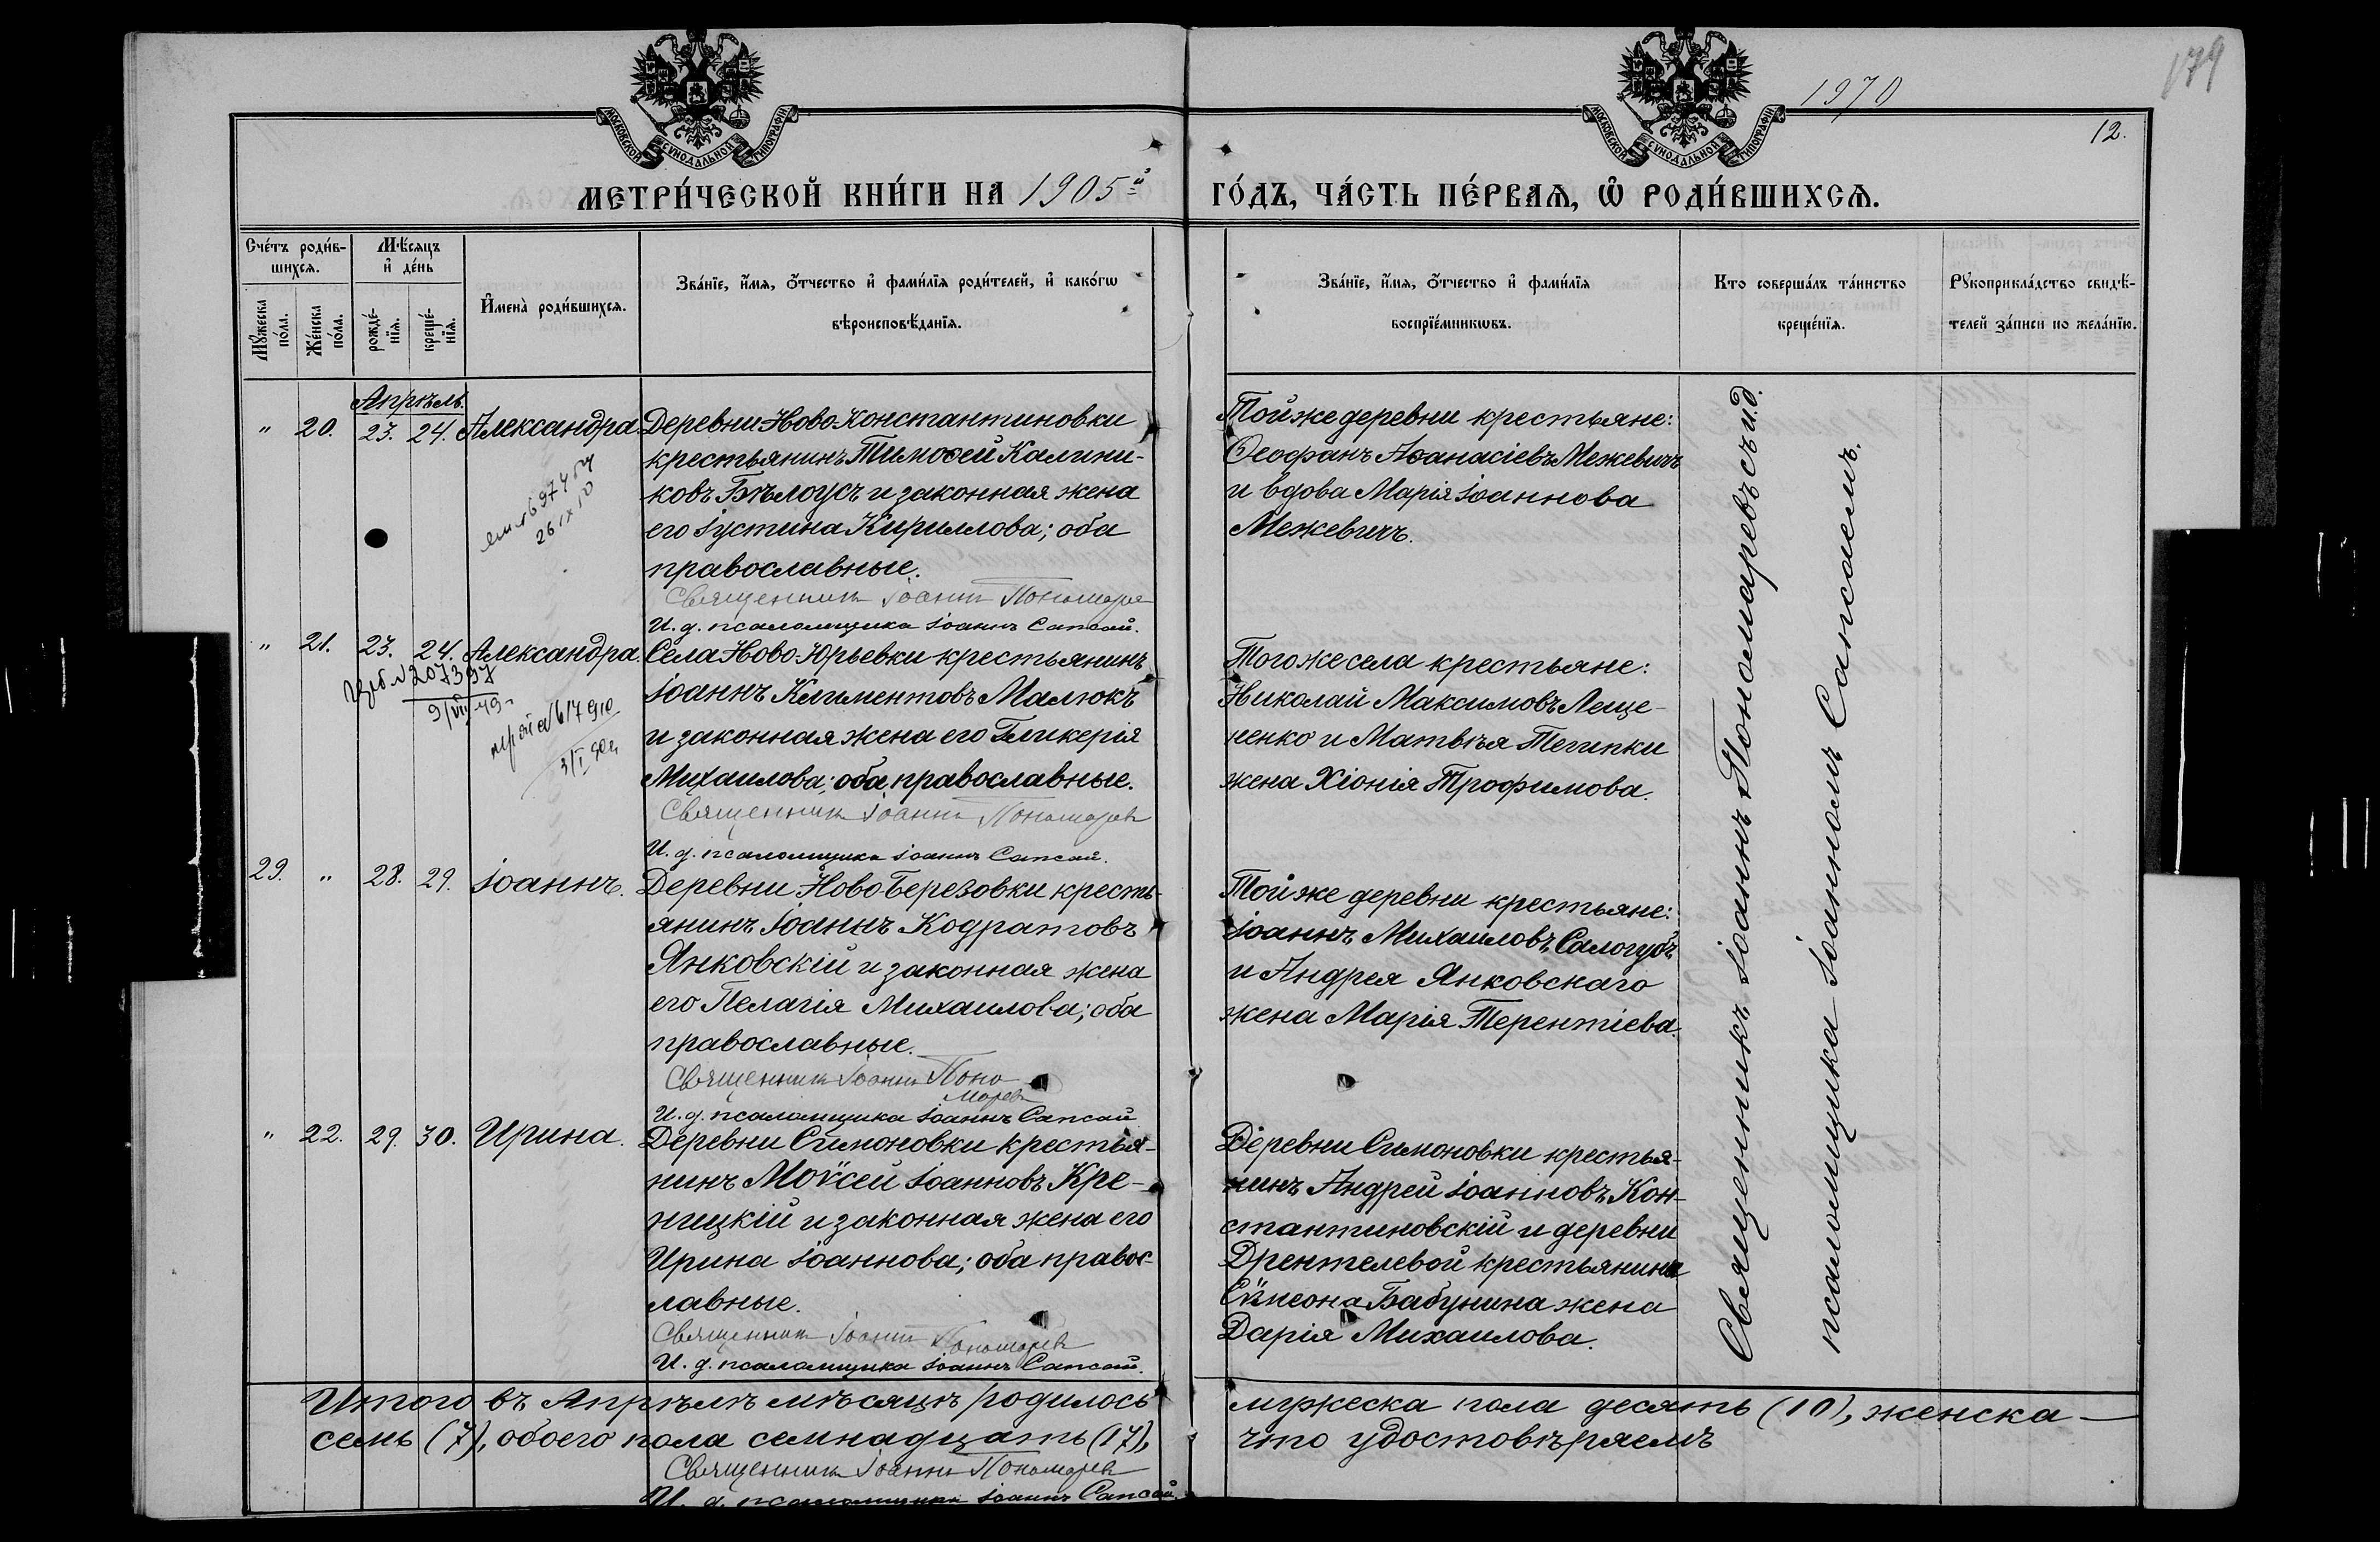 179
1970
12.
МОСКОВСКОЙ СУНОДАЛЬНОЙ ТИПОГРАФІИ
МОСКОВСКОЙ СУНОДАЛЬНОЙ ТИПОГРАФІИ
МЕТРИ́ЧЕСКОЙ КНИ́ГИ НА 1905й ГО́ДЪ, ЧА́СТЬ ПЕ́РВАѦ, Ѡ҆ РОДИ́ВШИХСѦ.
Сче́тъ роди́в-
шихсѧ.
Мꙋ́жеска по́ла.
Же́нска по́ла.
Мѣ́сѧцъ
и҆ де́нь
рожде́-
нїѧ.
креще́-
нїѧ.
И҆мена̀ роди́вшихсѧ.
Зва́нїе, и҆́мѧ, ѻ҆́тчество и҆ фами́лїѧ роди́телей, и҆ како́гѡ
вѣроисповѣ́данїѧ.
Зва́нїе, и҆́мѧ, ѻ҆́тчество и҆ фами́лїѧ
воспрїе́мникѡвъ.
Кто соверша́лъ та́инство
креще́нїѧ.
Рꙋкоприкла́дство свидѣ́-
телей за́писи по жела́нїю.
Апрѣль.
" 20. 23. 24. Александра
Деревни Ново-Константиновки
крестьянинъ Тимоѳей Калини-
ковъ Бѣлоусъ и законная жена
его Іустина Кириллова; оба
православные.
Священникъ Іоаннъ Пономарев
И. д. псаломщика Іоаннъ Сапсай.
Той же деревни крестьяне:
Ѳеофанъ Аѳанасіевъ Межевичъ
и вдова Марія Іоаннова
Межевичъ.
26 IX 50
" 21. 23. 24. Александра.
№ 207397
9/VIII 49
3/I 50
Села Ново-Юрьевки крестьянинъ
Іоаннъ Климентовъ Малюкъ
и законная жена его Гликерія
Михаилова; оба православные.
Священникъ Іоаннъ Пономарев
И. д. псаломщика Іоаннъ Сапсай.
Того же села крестьяне:
Николай Максимовъ Леще-
ненко и Матвѣя Тегипки
жена Хіонія Трофимова.
29. " 28. 29. Іоаннъ.
Деревни Ново Березовки кресть-
янинъ Іоаннъ Кодратовъ
Янковскій и законная жена
его Пелагія Михаилова; оба
православные.
Священникъ Іоаннъ Поно
марев
И. д. псаломщика Іоаннъ Сапсай
Той же деревни крестьяне:
Іоаннъ Михаиловъ Салогубъ
и Андрея Янковскаго
жена Марія Терентіева.
" 22. 29. 30. Ирина.
Деревни Симоновки крестья-
нинъ Моѵсей Іоанновъ Кре-
ницкій и законная жена его
Ирина Іоаннова; оба правос-
лавные.
Священникъ Іоаннъ Пономарев
И. д. псаломщика Іоаннъ Сапсай.
Деревни Симоновки крестья-
нинъ Андрей Іоанновъ Кон-
стантиновскій и деревни
Дрентелевой крестьянина
Сѵмеона Бабунина жена
Дарія Михаилова.
Священникъ Іоаннъ Пономаревъ съ и.д.
псаломщика Іоанномъ Сапсаемъ.
Итого въ Апрѣлѣ мѣсяцѣ родилось мужеска пола десять (10), женска —
семь (7), обоего пола семнадцать (17), что удостовѣряемъ
Священникъ Іоаннъ Пономарев
И. д. псаломщика Іоаннъ Сапсай.